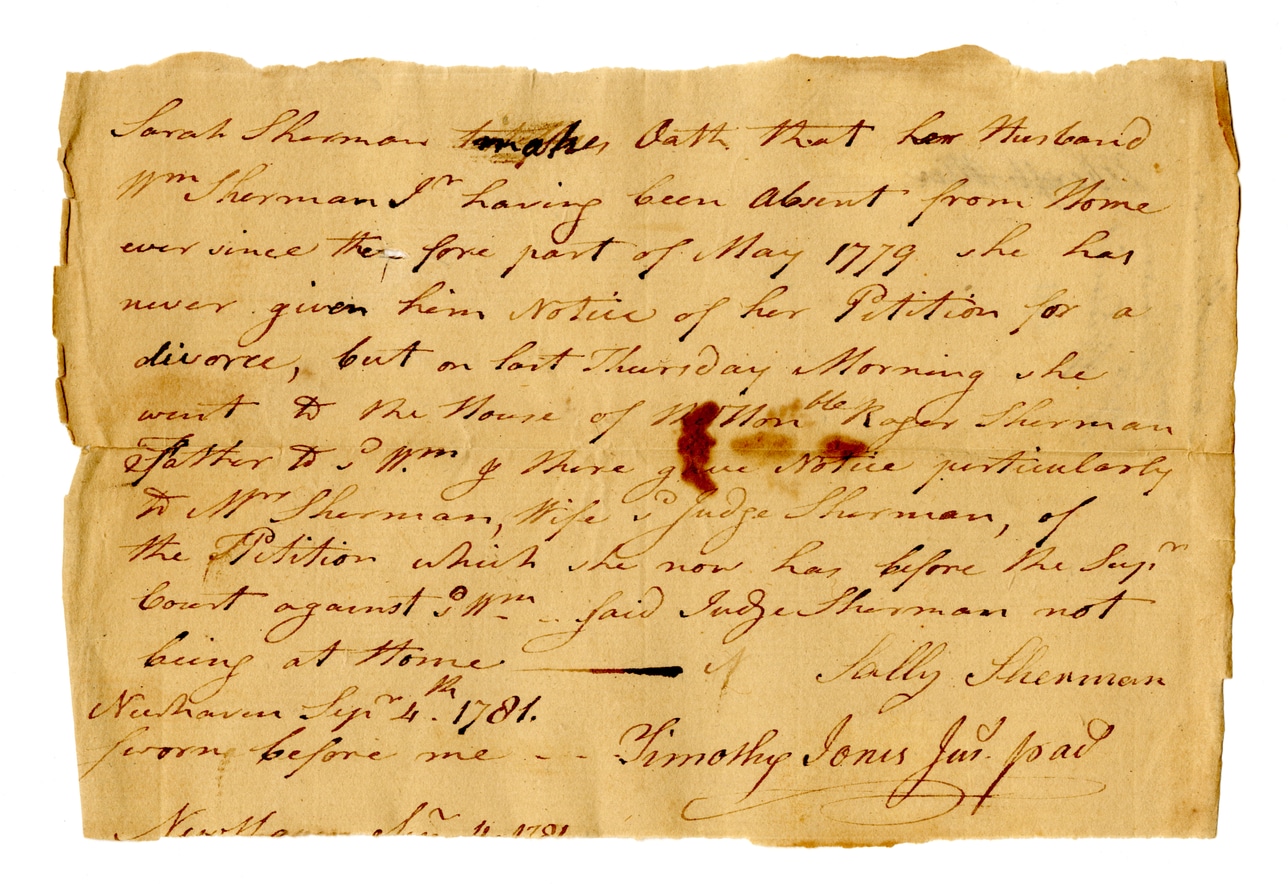 Sarah Sherman makes Oath that her Husband
Wm Sherman Jr having been absent from Home
ever since the fore part of May 1779 she has
never given him Notice of her Petition for a
divorce, but on last Thursday Morning she
went to the House of Honble Roger Sherman
Father to sd Wm & there gave Notice perticularly
to Mrs Sherman, Wife sd Judge Sherman, of
the Petition which she now has before the Supr
Court against sd Wm - said Judge Sherman not
being at Home
Sally Sherman
Newhaven Sepr 4th 1781.
sworn before me - - Timothy Jones Jus. pad
New Haven 4 1781